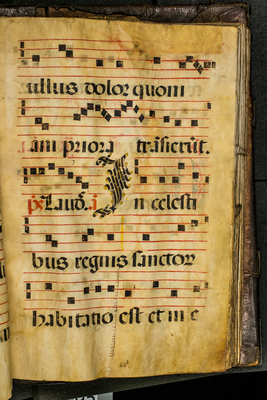 ullus dolor quoni
am priora trāsierūt.
ps. Laud. i In celesti
bus regnis sanctor
habitatio est et in e